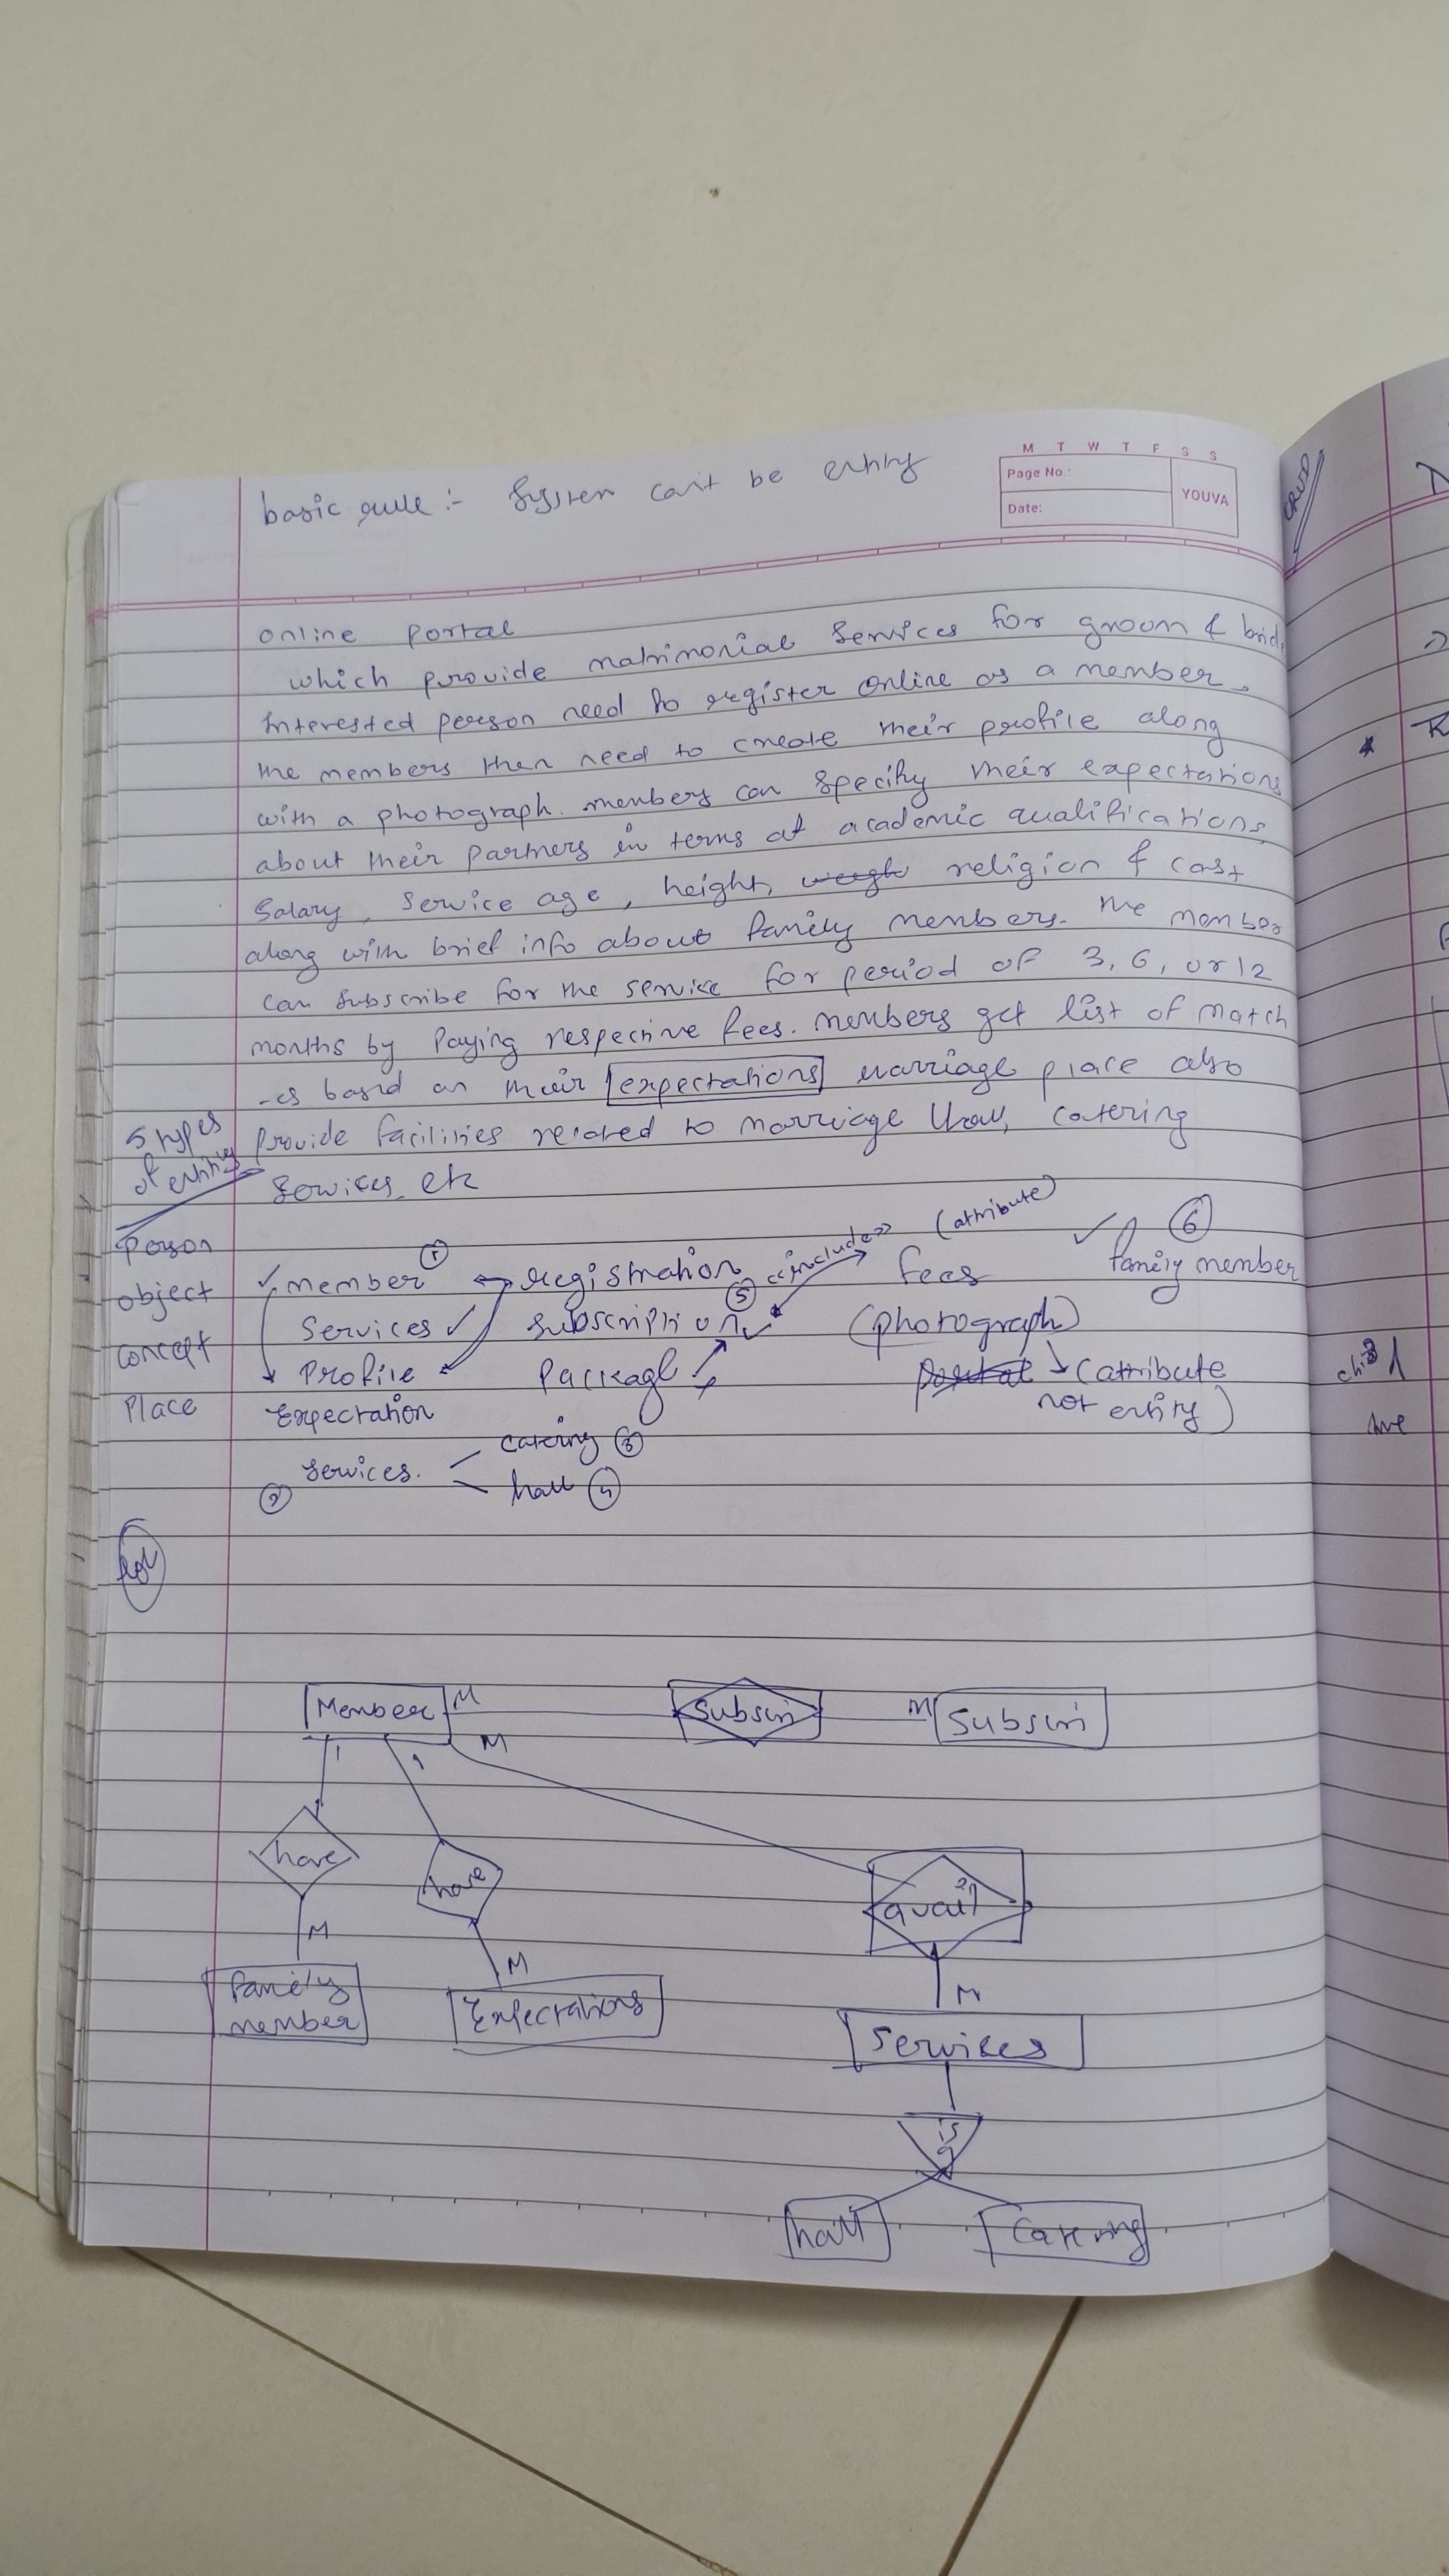 M T W T F S S
Page No.:
Date:
YOUVA
basic rule :- System can't be entity
online portal
which provide matrimonial services for groom & bride
Interested person need to register online as a member.
the members then need to create their profile along
with a photograph. members can specify their expectations
about their partners in terms of academic qualifications,
salary, service age, height, religion & cast
along with brief info about family members. The member
can subscribe for the service for period of 3, 6, or 12
months by paying respective fees. members get list of match
-es based on their expectations marriage place also
provide facilities related to marriage Hall, catering
services etc
5 types
of entity
person
object
concept
Place
member ①
registration
<<include>>
(attribute)
fees
⑥
family member
Services
subscription ⑤
(photograph)
Profile
package
(attribute
not entity)
Expectation
② services.
catering ③
hall ④
Member
M
Subscri
M
Subscri
1
1
M
have
have
avail
M
M
M
family
member
Expectations
Services
is
a
hall
Catering
CRUD